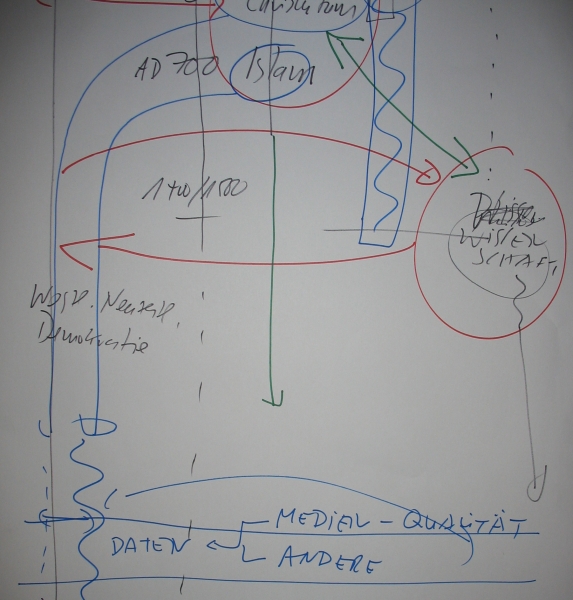 Christentum
AD 700 Islam
1400/1500
WISSEN
SCHAFT,
Demokratie
MEDIEN - QUALITÄT
DATEN
ANDERE